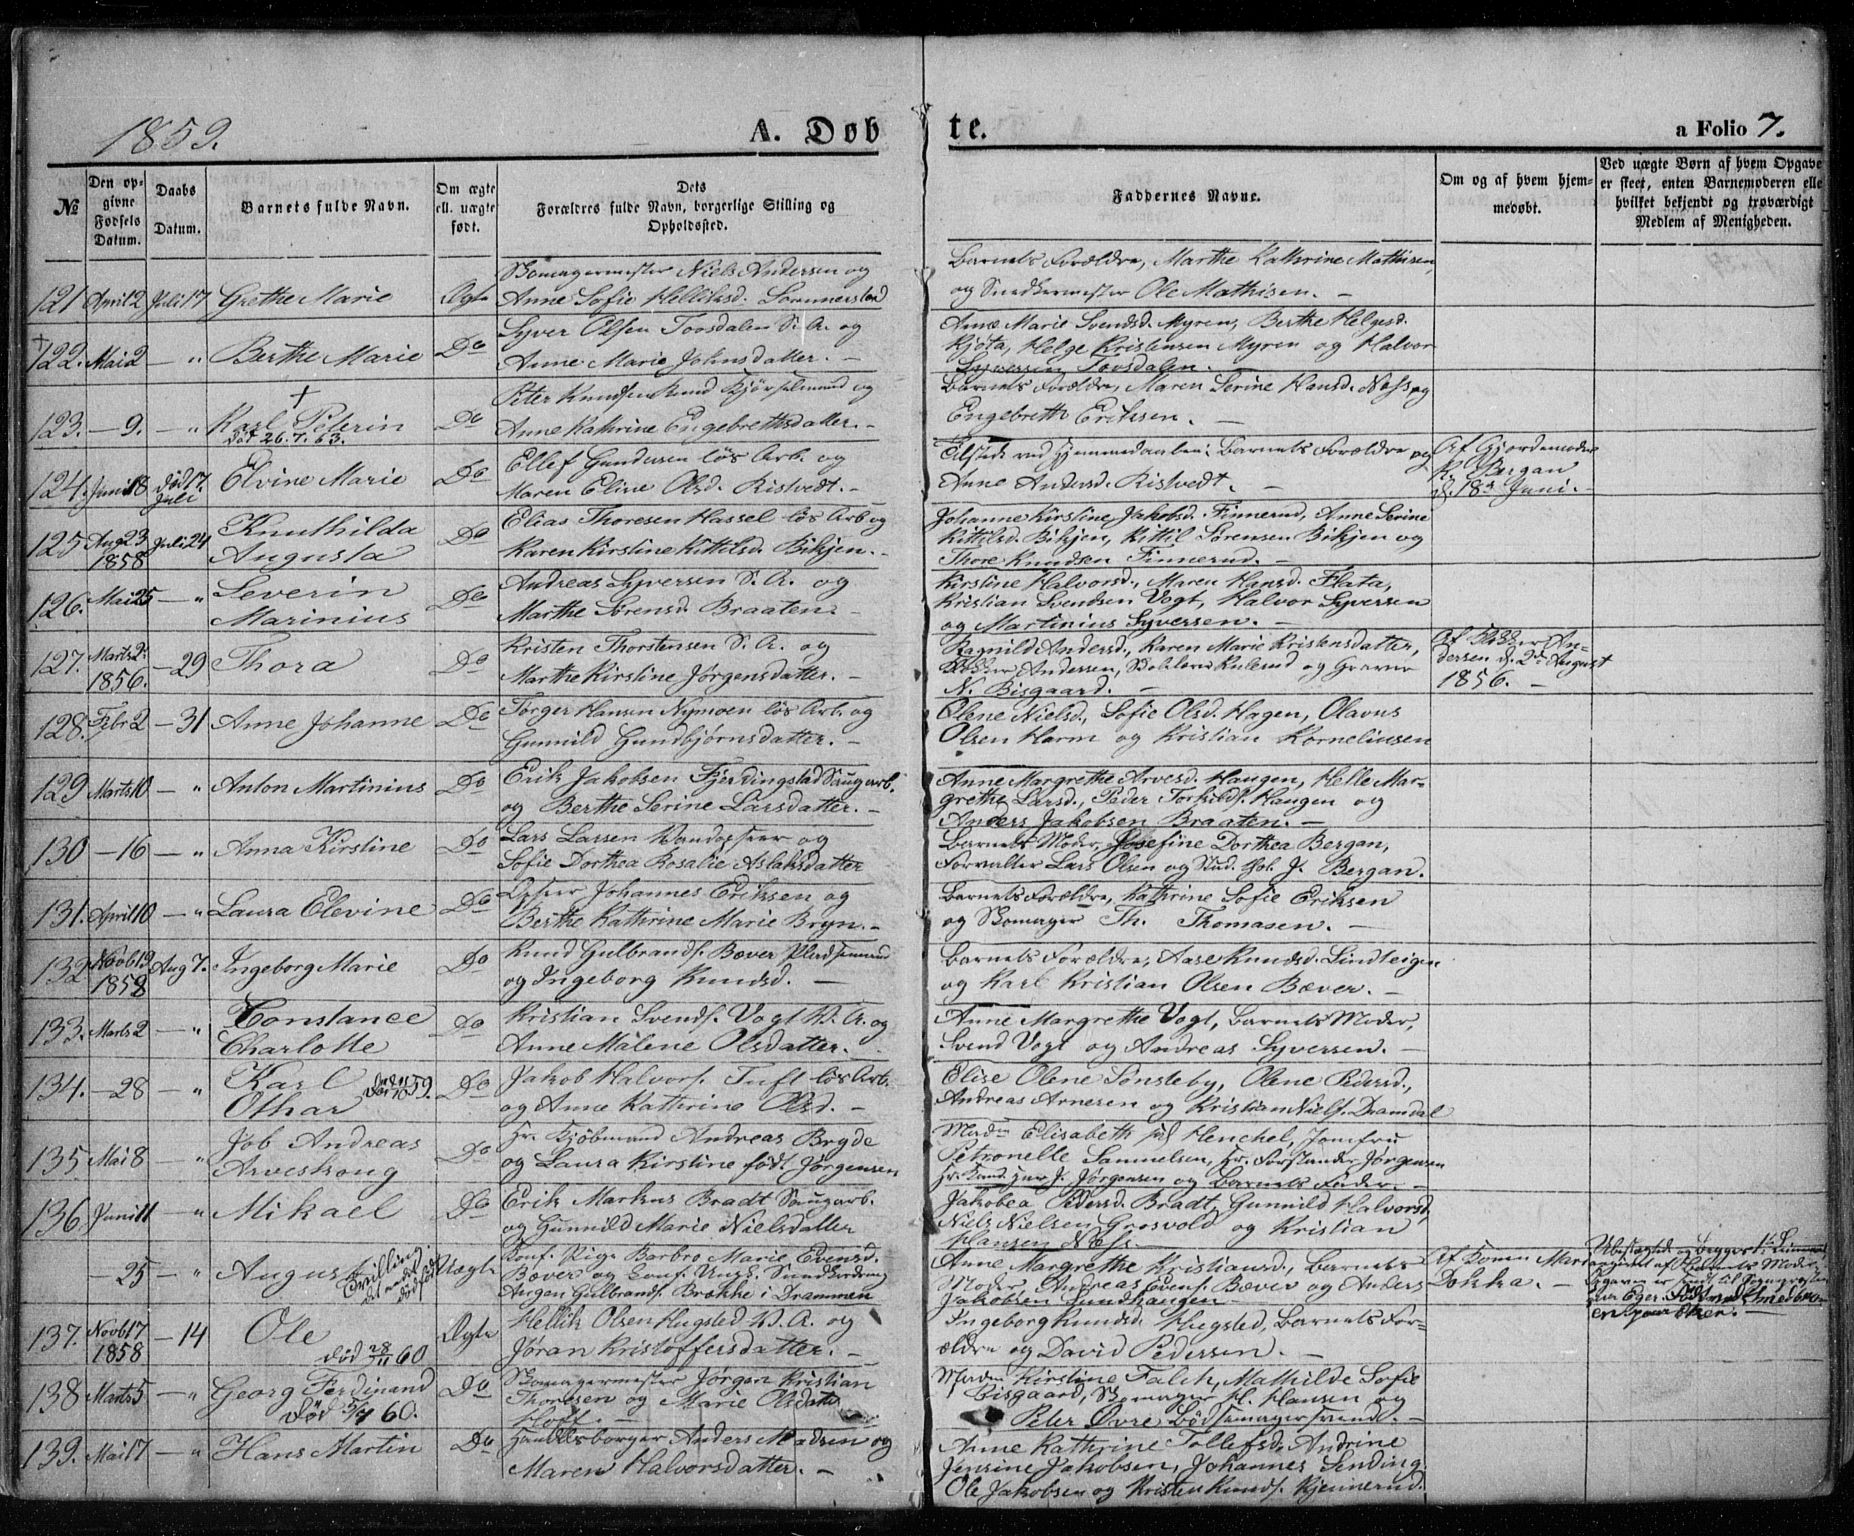 1859.
A. Døbte.
a Folio 7.
№
Den opgivne Fødsels Datum.
Daabs Datum.
Barnets fulde Navn.
Om ægte ell. uægte født.
Dets Forældres fulde Navn, borgerlige Stilling og Opholdssted.
Faddernes Navne.
Om og af hvem hjemmedøbt.
Ved uægte Børn af hvem Opgave er skeet, enten Barnemoderen elle hvilket bekjendt og troværdigt Medlem af Menigheden.
121 April 2 Juli 17 Grethe Marie Ægte
Skomagermester Niels Andersen og
Anne Sofie Helliksd.
Barnets Forældre, Marthe Kathrine Mathisen,
og Snedkermester Ole Mathisen. –
† 122. Mai 2 – " Berthe Marie Do
Syver Olsen Toosdalen S. A. og
Anne Marie Johnsdatter. –
Anne Marie Svendsd. Myren, Berthe Helgesd.
Kjøta, Helge Kristensen Myren og Halvor
Syversen Toosdalen. –
123. – 9. – " Karl Peterin † Do
død 26.7.63.
Peter Knudsen
Anne Kathrine Engebrethsdatter. –
Barnets Forældre, Maren Serine Hansd. Næss og
Engebreth Eriksen. –
124. Juni 18 død 17. Juli Elvine Marie Do
Ellef Gundersen løs Arb. og
Maren Eline Olsd. Ristvedt. –
Tilstede ved Hjemmedaaben: Barnets Forældre og
Anne Andersd. Ristvedt. –
Af Gjordemoder
K. Bergan
d. 18de Juni. –
125 Aug 23 1858 Juli 24 Knuthilda Augusta Do
Elias Thoresen Hassel løs Arb og
Karen Kirstine Kittilsd. Bikjen. –
Johanne Kirstine Jakobsd. Finnerud, Anne Serine
Kittilsd. Bikjen, Kittil Sørensen Bikjen og
Thore Knudsen Finnerud. –
126. Mai 25 – " Severin Marinius Do
Andreas Syversen S. A. og
Marthe Sørensd. Braaten. –
Kirstine Halvorsd., Maren Hansd. Flata,
Kristian Svendsen Vogt, Halvor Syversen
og Martinius Syversen. –
127. Marts 2 1856. – 29 Thora Do
Kristen Thorstensen S. A. og
Marthe Kirstine Jørgensdatter. –
Ragnild Andersd., Karen Marie Kristensdatter,
Andersen, Skolelærer Rulerud og Graver
N. Bisgaard. –
Andersen d. 2de August
1856. –
128. Febr 2 – 31 Anne Johanne Do
Torger Hansen Nymoen løs Arb. og
Gunnild Gundbjørnsdatter. –
Olene Nielsd., Sofie Olsd. Hagen, Olavus
Olsen Harm og Kristian Kornelinsen
129 Marts 10 – " Anton Martinius Do
Erik Jakobsen Fjerdingstad Saugarb.
og Berthe Serine Larsdatter. –
Anne Margrethe Arvesd. Haugen, Helle Mar-
grethe Larsd., Peder Torkilds. Haugen og
Anders Jakobsen Braaten. –
130 – 16 – " Anna Kirstine Do
Lars Larsen og
Sofie Dorthea Rosalie Aslaksdatter
Barnets Moder, Josefine Dorthea Bergan,
Forvalter Lars Olsen og Stud. J. Bergan.
131. April 10 – " Laura Elevine Do
Johannes Eriksen og
Berthe Kathrine Marie Bryn. –
Barnets Forældre, Kathrine Sofie Eriksen
og Skomager Th. Thomasen. –
132 Novb 19 1858 Aug 7. Ingeborg Marie Do
Knud Gulbrands. Bæver
og Ingeborg Knudsd. –
Barnets Forældre, Aase Knudsd. Lindteigen
og Karl Kristian Olsen Bæver. –
133. Marts 2 – " Constance Charlotte Do
Kristian Svends. Vogt V. A. og
Anne Malene Olsdatter. –
Anne Margrethe Vogt, Barnets Moder,
Svend Vogt og Andreas Syversen. –
134. – 28 – " Karl Othar Do
Jakob Halvors. Tuft løs Arb.
og Anne Kathrine Olsd. –
Elise Olene Sønsteby, Olene Pedersd.,
Andreas Arnesen og Kristian Niels. Dramdal
135 Mai 8 " Job Andreas Arveskoug Do
Hr. Kjøbmand Andreas Bryde
og Laura Kirstine født Jørgensen
Madm Elisabeth Henchel, Jomfru
Petronelle Samuelsen, Hr. Forstander Jørgensen
Hr. Kand. J. Jørgensen og Barnets Fader. –
136. Juni 11 " Mikael Do
Erik Markus Bradt Saugarb.
og Gunnild Marie Nielsdatter
Jakobea Pedersd. Bradt, Gunnild Halvorsd,
Niels Nielsen Grosvold og Kristian
Hansen Næss. –
– 25 – " August Uægte
Tvilling, det andet dødfødt
Konf. Pige Barbro Marie Evensd.
Bæver og Ungk. Snedkerdreng
August Gulbrands. Brække i Drammen
Anne Margrethe Kristiansd., Barnets
Moder, Andreas Evens. Bæver og Anders
Jakobsen Sundhaugen –
Af Konen Mari
Dokka. –
137. Novb 17 1858 – 14 Ole Ægte
død 28/11 60
Hellik Olsen Hugsted V. A. og
Jøran Kristoffersdatter. –
Ingeborg Knudsd. Hugsted, Barnets For-
ældre og David Pedersen. –
138 Marts 5 – " Georg Ferdinand Do
død 5/7 60.
Skomagermester Jørgen Kristian
Thoresen og Marie Olsdatter
Hoff. –
Madm Kirstine Falch, Mathilde Sofie
Bisgaard, Skomager H. Hansen og
Peter Øvre Bødkermagersvend. –
139. Mai 17 – " Hans Martin Do
Handelsborger Anders Madsen og
Maren Halvorsdatter. –
Anne Kathrine Tollefsd., Andrine
Jensine Jakobsen, Johannes Sending,
Ole Jakobsen og Kristen Knuds. Kjennerud.